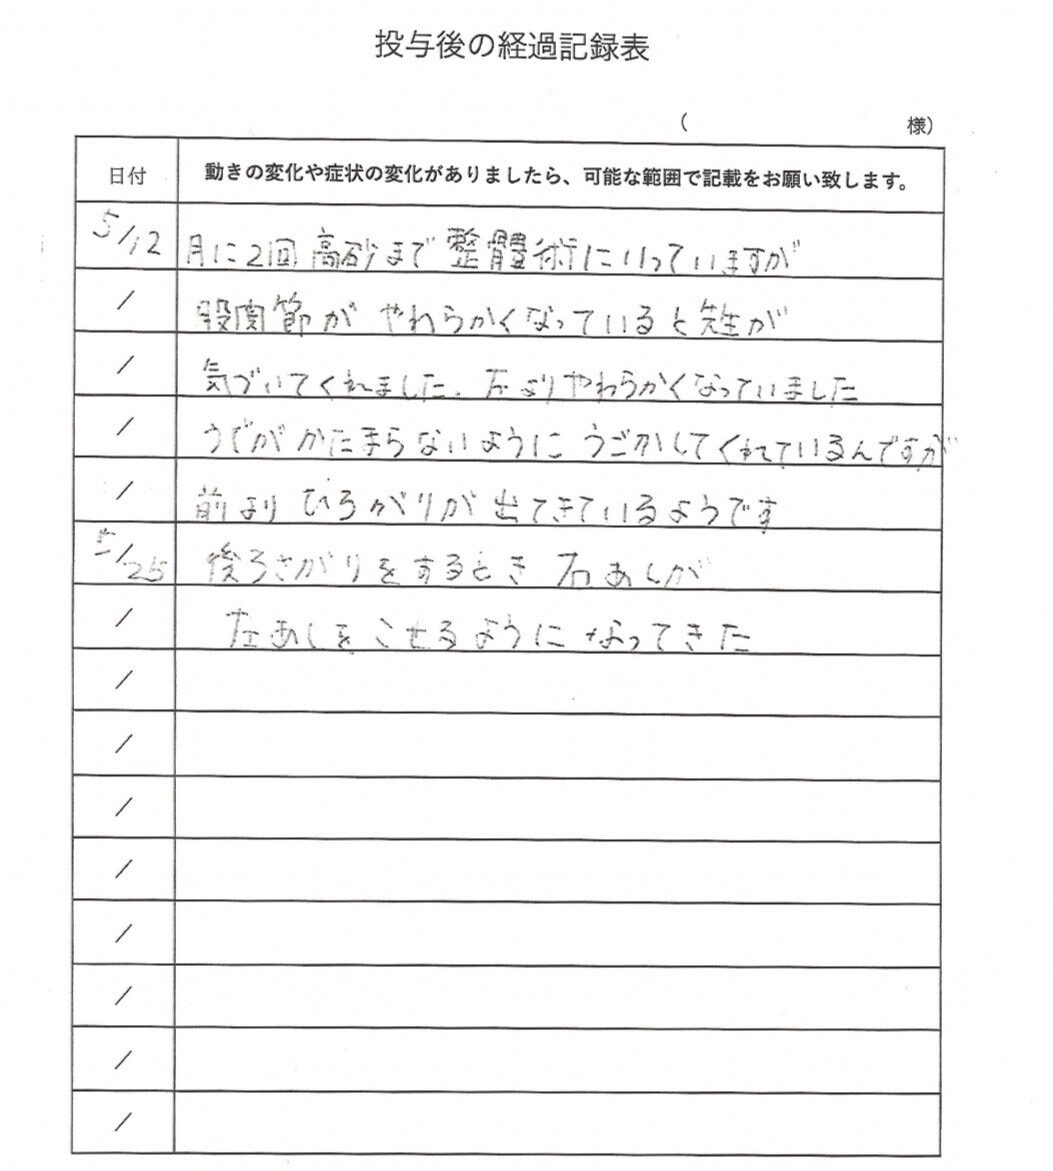 投与後の経過記録表
( 様)
日付 動きの変化や症状の変化がありましたら、可能な範囲で記載をお願い致します。
5/12 月に2回高砂まで整體術にいっていますが
/ 股関節がやわらかくなっていると先生が
/ 気づいてくれました、左よりやわらかくなっていました
/ うでがかたまらないようにうごかしてくれているんですが
/ 前よりひろがりが出てきているようです
5/25 後ろさがりをするとき右あしが
/ 左あしをこせるようになってきた
/
/
/
/
/
/
/
/